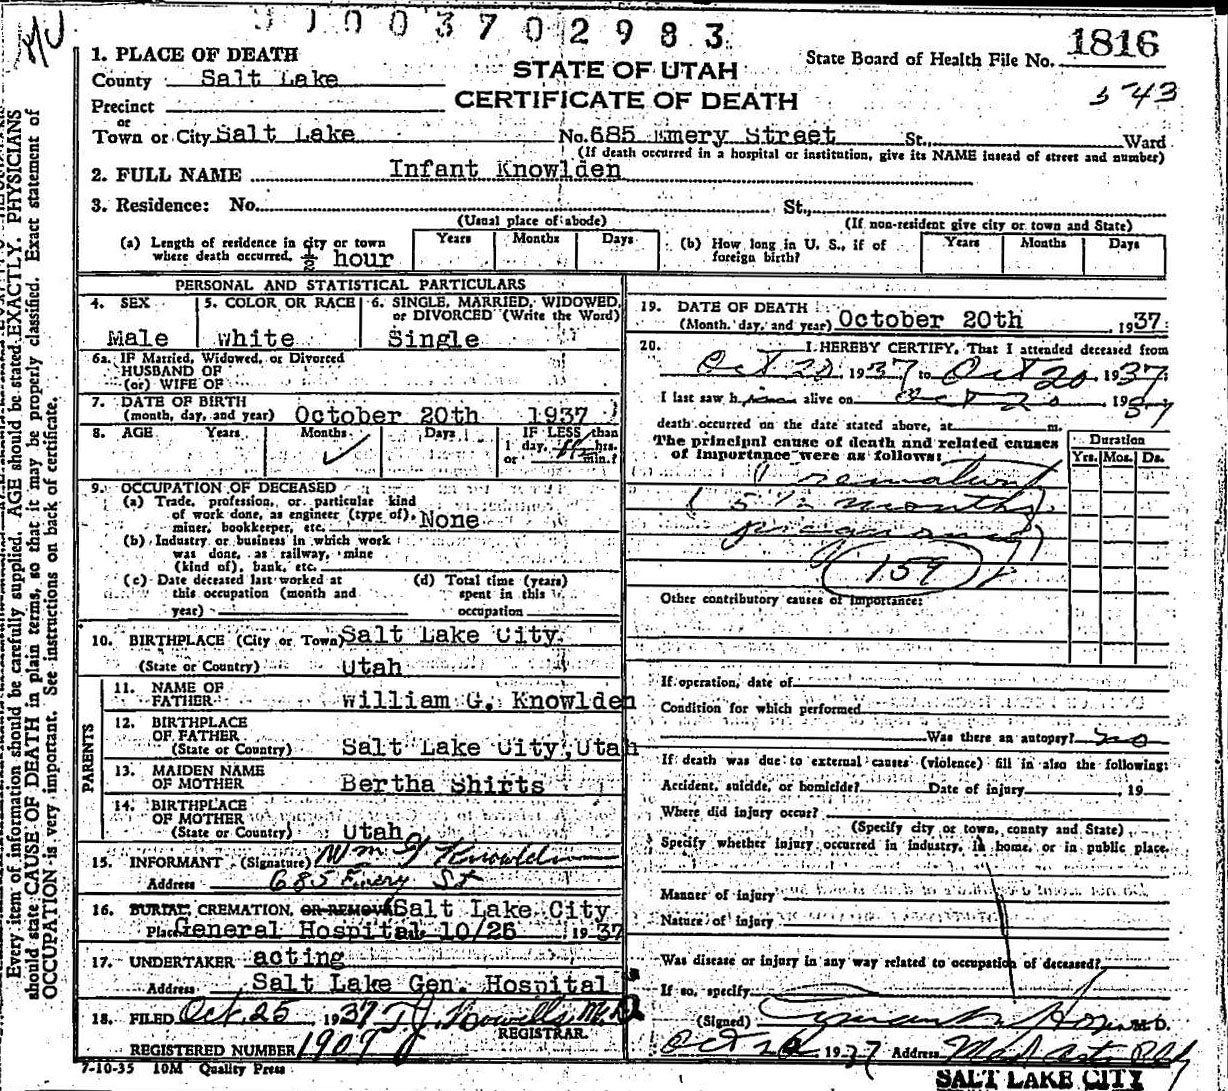 9 1 0 0 3 7 0 2 9 8 3
1. PLACE OF DEATH
County Salt Lake
STATE OF UTAH
State Board of Health File No. 1816
Precinct
CERTIFICATE OF DEATH
543
or
Town or City Salt Lake No. 685 Emery Street St., Ward
(If death occurred in a hospital or institution, give its NAME insead of street and number)
2. FULL NAME Infant Knowlden
3. Residence: No. St.,
(Usual place of abode) (If non-resident give city or town and State)
(a) Length of residence in city or town where death occurred. 1/2 hour Years Months Days
(b) How long in U. S., if of foreign birth? Years Months Days
PERSONAL AND STATISTICAL PARTICULARS
4. SEX 5. COLOR OR RACE 6. SINGLE, MARRIED, WIDOWED,
or DIVORCED (Write the Word)
Male White Single
6a. IF Married, Widowed, or Divorced
HUSBAND OF
(or) WIFE OF
7. DATE OF BIRTH
(month, day, and year) October 20th 1937
8. AGE Years Months Days IF LESS than
1 day, 1/2 hrs.
or min.?
9. OCCUPATION OF DECEASED
(a) Trade, profession, or particular kind
of work done, as engineer (type of),
miner, bookkeeper, etc. None
(b) Industry or business in which work
was done, as railway, mine
(kind of), bank, etc.
(c) Date deceased last worked at
this occupation (month and
year)
(d) Total time (years)
spent in this
occupation
10. BIRTHPLACE (City or Town) Salt Lake City.
(State or Country) Utah
PARENTS
11. NAME OF
FATHER William G. Knowlden
12. BIRTHPLACE
OF FATHER
(State or Country) Salt Lake City, Utah
13. MAIDEN NAME
OF MOTHER Bertha Shirts
14. BIRTHPLACE
OF MOTHER
(State or Country) Utah
15. INFORMANT (Signature) Wm G Knowlden
Address 685 Emery St
16. BURIAL, CREMATION, OR REMOVAL Salt Lake City
Place General Hospital 10/25 1937
17. UNDERTAKER acting
Address Salt Lake Gen. Hospital
18. FILED Oct. 25 1937 T J Howells M.D.
REGISTRAR.
REGISTERED NUMBER 1909
7-10-35 10M Quality Press
19. DATE OF DEATH
(Month, day, and year) October 20th, 1937
20. I HEREBY CERTIFY, That I attended deceased from
Oct 20, 1937 to Oct 20, 1937
I last saw him alive on Oct 20 1937
death occurred on the date stated above, at m.
The principal cause of death and related causes
of importance were as follows:
Duration
Yrs. Mos. Ds.
Premature
(5 1/2 months
pregnancy)
159
Other contributory causes of importance:
If operation, date of
Condition for which performed
Was there an autopsy? no
If death was due to external causes (violence) fill in also the following:
Accident, suicide, or homicide? Date of injury , 19
Where did injury occur?
(Specify city or town, county and State)
Specify whether injury occurred in industry, in home, or in public place.
Manner of injury
Nature of injury
Was disease or injury in any way related to occupation of deceased?
If so, specify
(Signed) M.D.
Oct 1937 Address Med Arts Bldg
SALT LAKE CITY
Every item of information should be carefully supplied. AGE should be stated EXACTLY. PHYSICIANS
should state CAUSE OF DEATH in plain terms, so that it may be properly classified. Exact statement of
OCCUPATION is very important. See instructions on back of certificate.